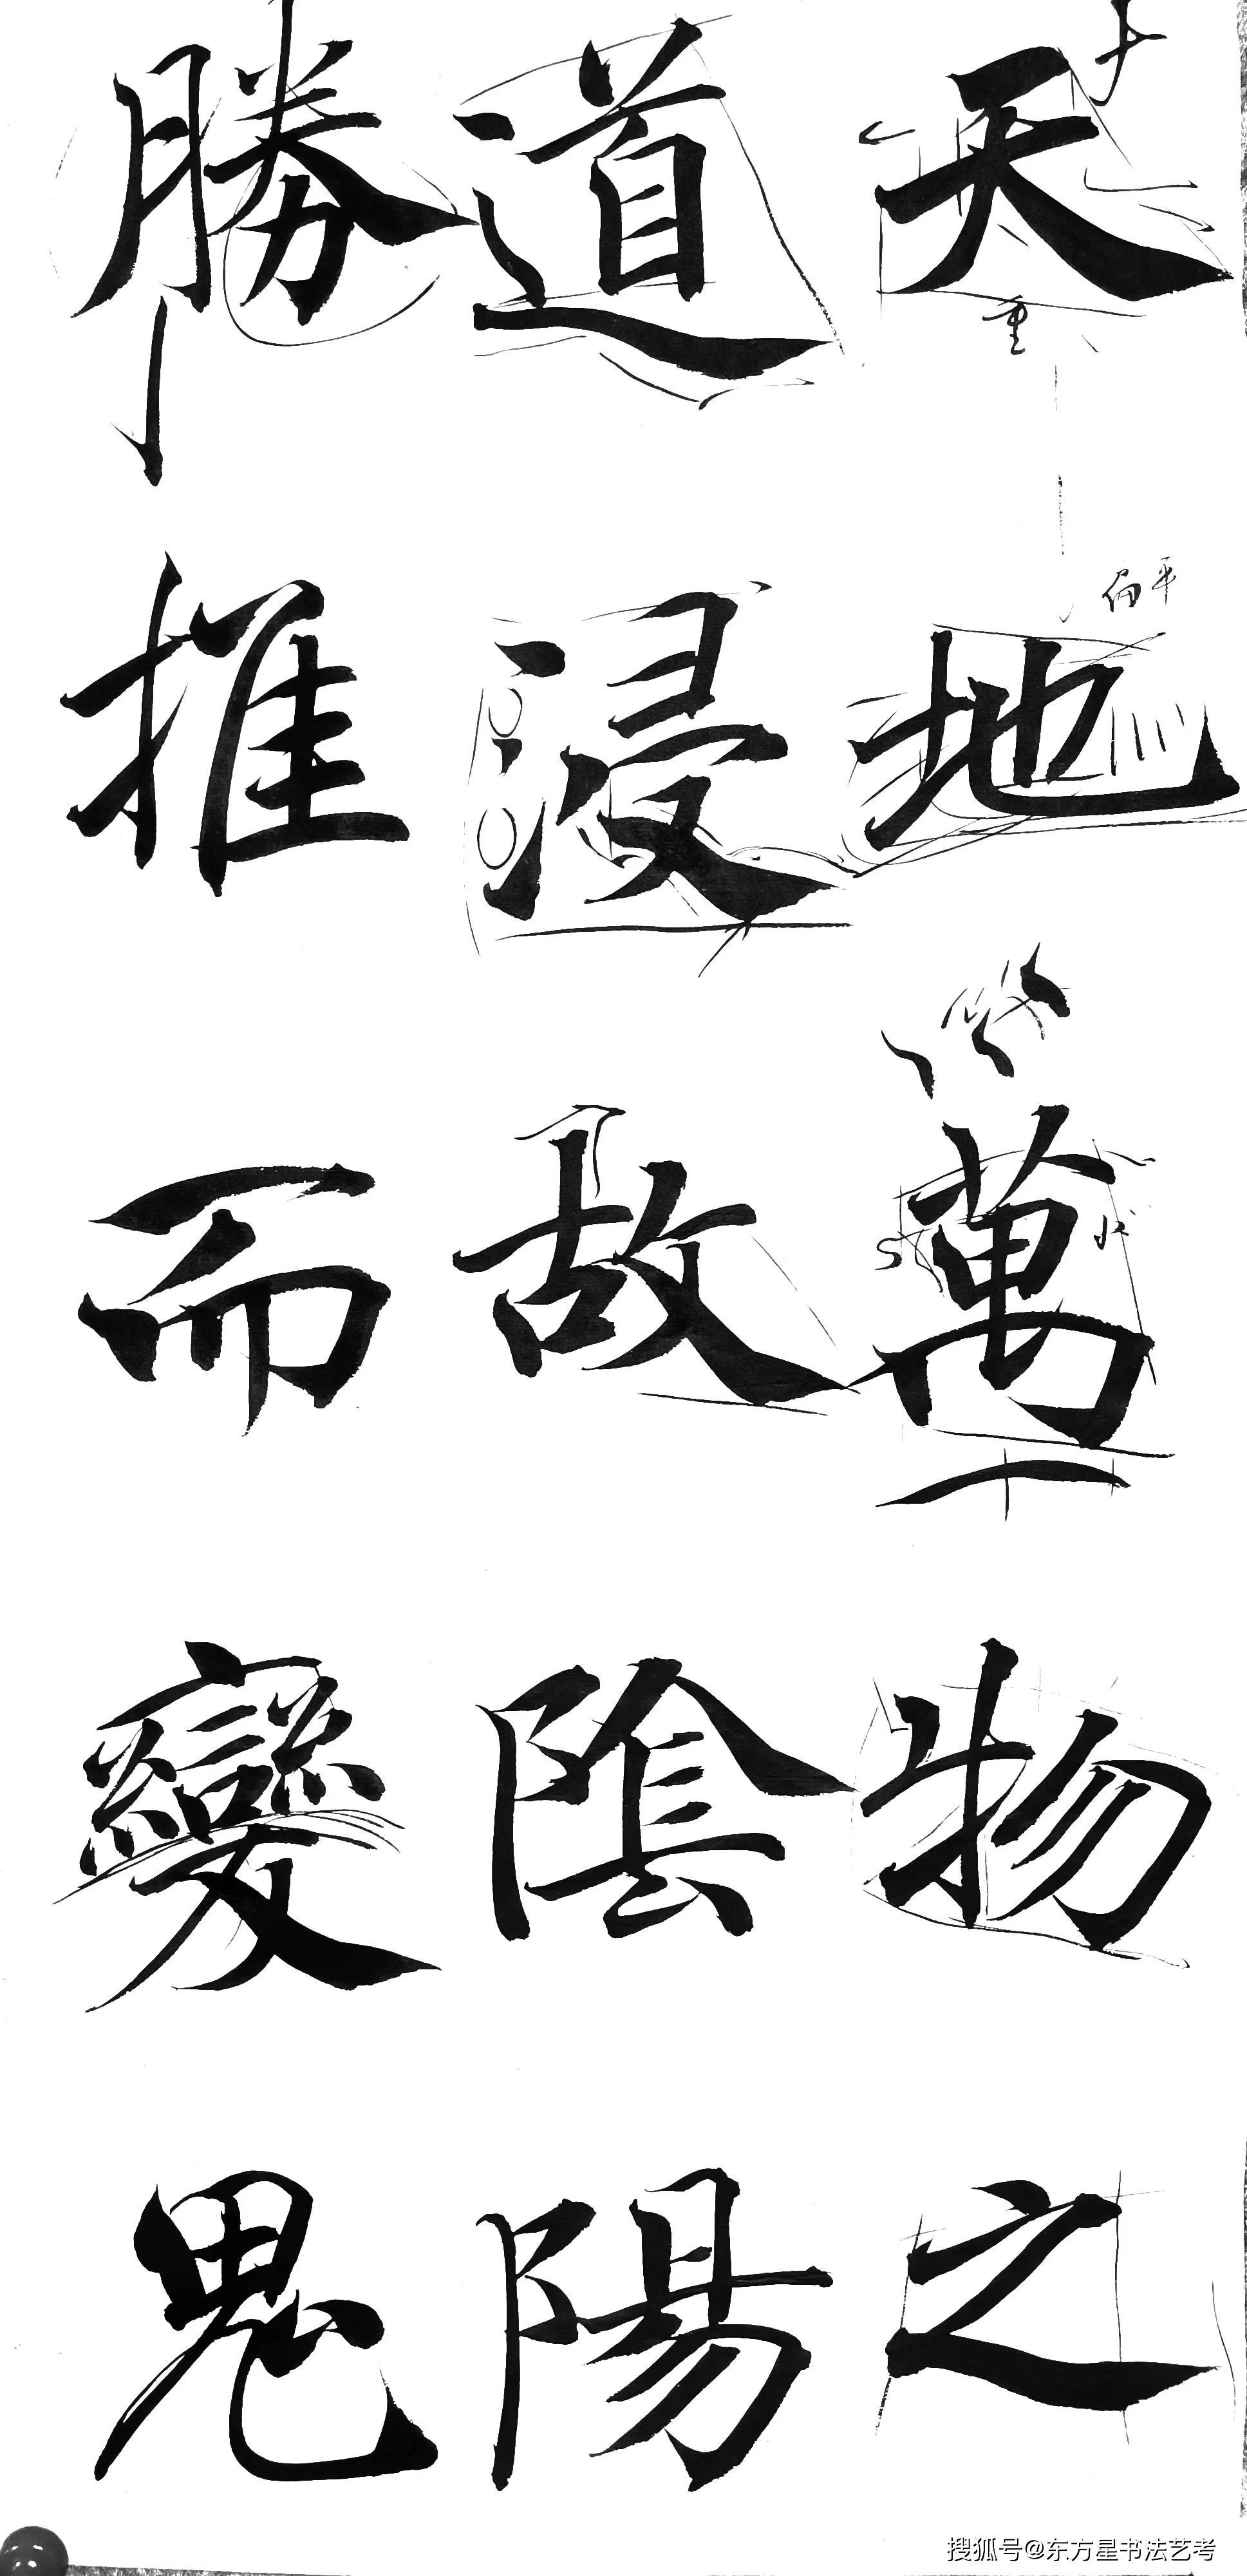 天地萬物之
道浸故陰陽
勝推而變鬼
重
平
扁
搜狐号@东方星书法艺考